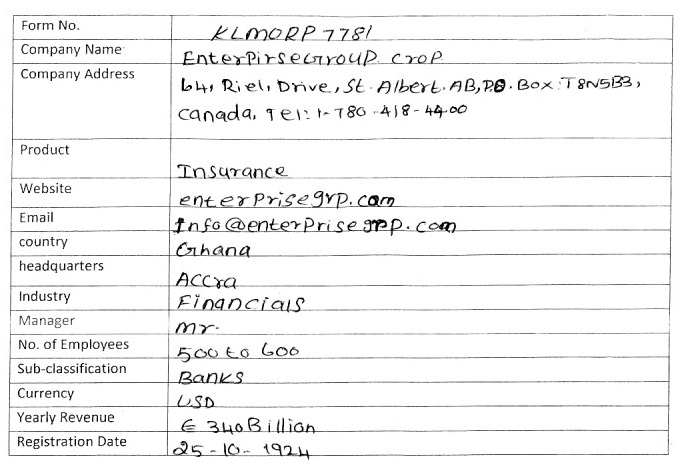 Form No. KLMORP 7781
Company Name EnterpirseGroup. crop
Company Address 64, Riel, Drive, St. Albert. AB, P.O. Box: T8N5B3,
Canada, Tel: 1-780-418-4400
Product Insurance
Website enterprisegrp.com
Email Info@enterprisegrp.com
country Ghana
headquarters Accra
Industry Financials
Manager Mr.
No. of Employees 500 to 600
Sub-classification Banks
Currency USD
Yearly Revenue € 340 Billion
Registration Date 25-10-1924